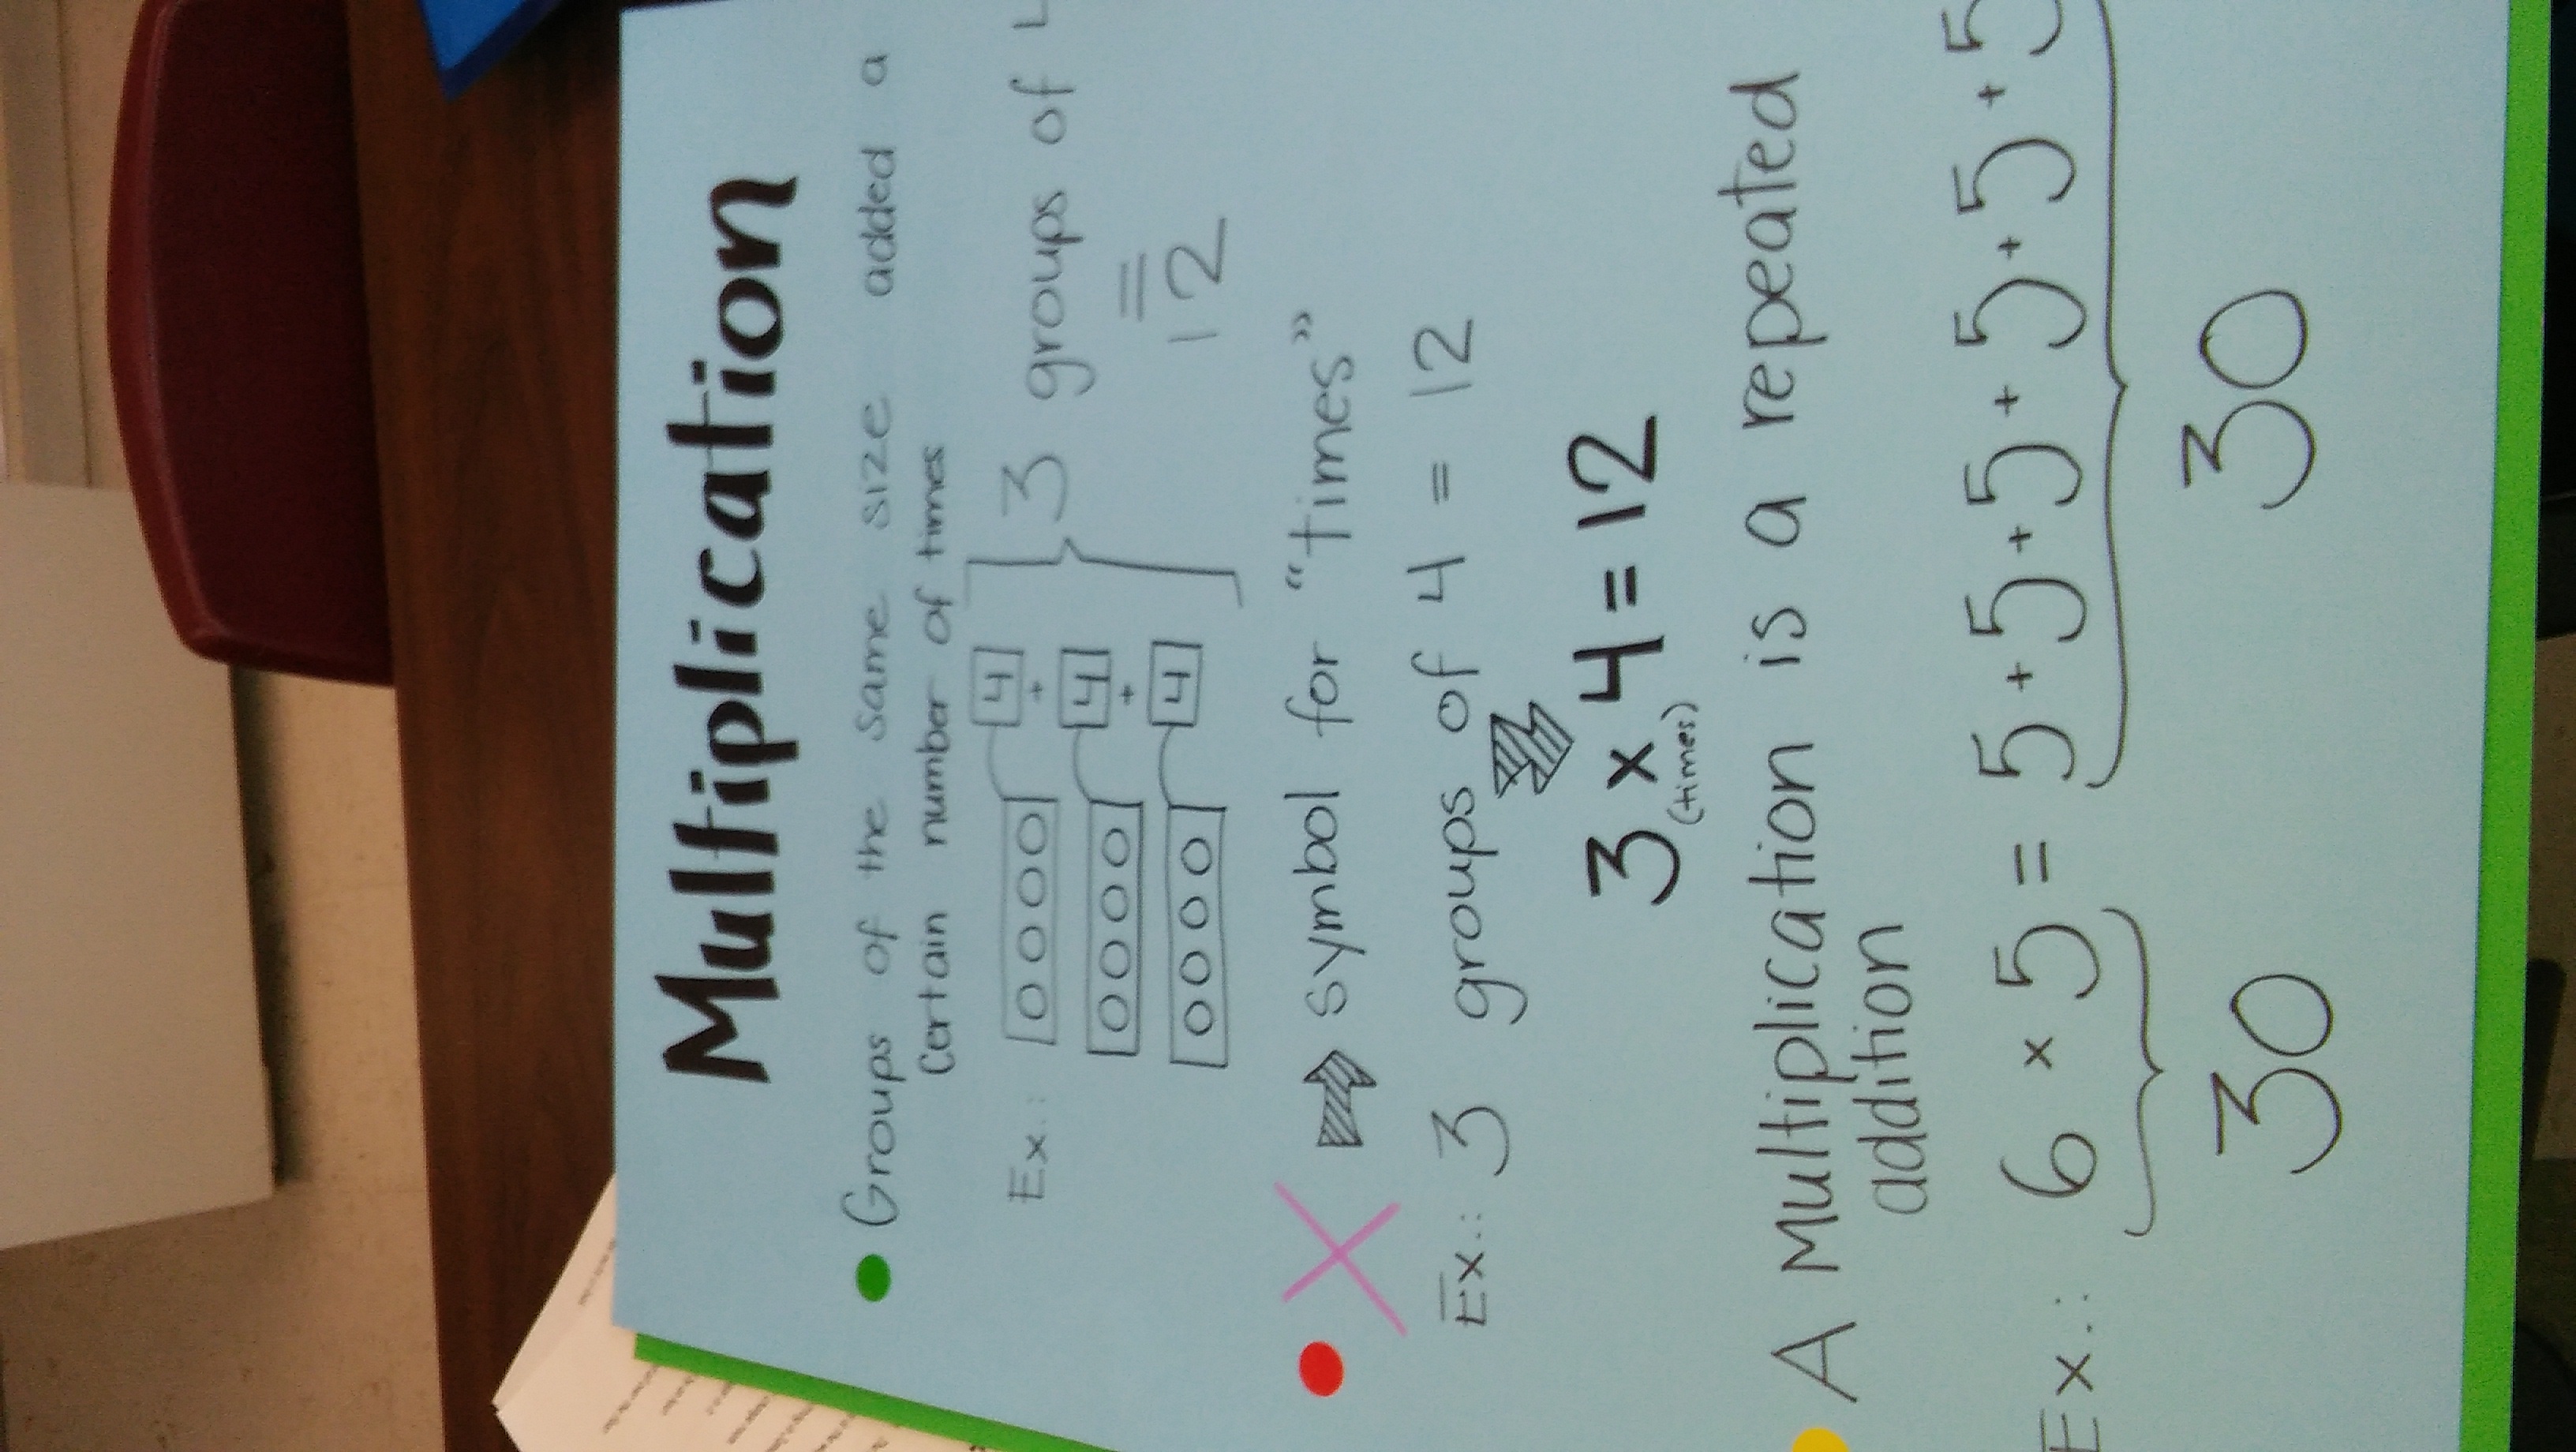 Multiplication
Groups of the same size added a
certain number of times
Ex.: 4 3 groups of
+
4 =
+
4 12
X symbol for "times"
Ex.: 3 groups of 4 = 12
3 x 4 = 12
(times)
A Multiplication is a repeated
addition
Ex.: 6 x 5 = 5 + 5 + 5 + 5 + 5 + 5
30 30